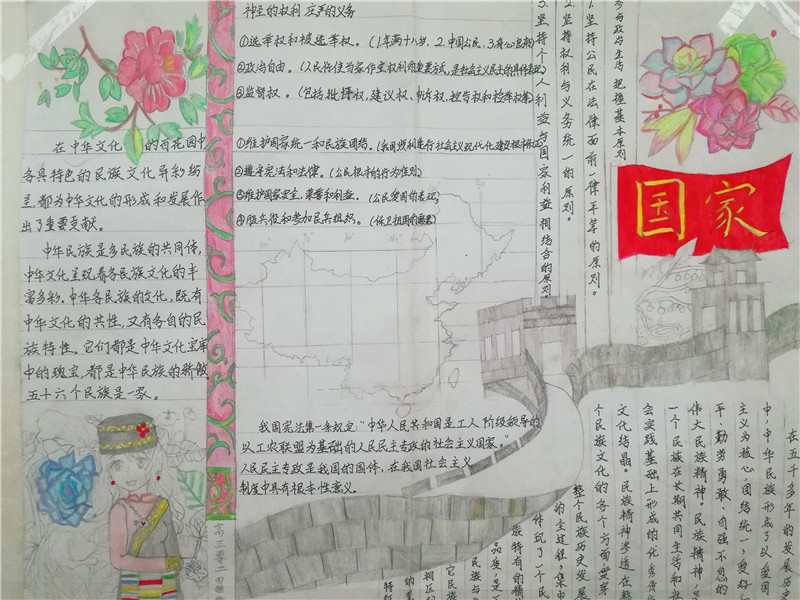 神圣的权利 庄严的义务
①选举权和被选举权。(1.年满十八岁、2.中国公民、3.有公民权利)
②政治自由。(人民行使当家作主权利的重要方式,是社会主义民主的具体表现)
③监督权。(包括批评权、建议权、申诉权、控告权和检举权等)
①维护国家统一和民族团结。(我国顺利进行社会主义现代化建设根本保证)
②遵守宪法和法律。(公民根本的行为准则)
③维护国家安全、荣誉和利益。(公民爱国的表现)
④服兵役和参加民兵组织。(保卫祖国的需要)
在中华文化的百花园中
各具特色的民族文化异彩纷
呈,都为中华文化的形成和发展作
出了重要贡献。
中华民族是多民族的共同体,
中华文化呈现着各民族文化的丰
富多彩。中华各民族的文化,既有
中华文化的共性,又有各自的民
族特性。它们都是中华文化宝库
中的瑰宝,都是中华民族的骄傲
五十六个民族是一家。
我国宪法第一条规定:“中华人民共和国是工人阶级领导的
以工农联盟为基础的人民民主专政的社会主义国家。”
人民民主专政是我国的国体,在我国社会主义
制度中具有根本性意义。
参与政治生活 把握基本原则
1.坚持公民在法律面前一律平等的原则。
2.坚持权利与义务统一的原则。
3.坚持个人利益与国家利益相结合的原则
国家
在五千多年的发展历史
中,中华民族形成了以爱国
主义为核心,团结统一、爱好和
平、勤劳勇敢、自强不息的
伟大民族精神。民族精神,是
一个民族在长期共同生活和社
会实践基础上形成的优秀传统
文化结晶。民族精神渗透在整
个民族文化的各个方面,贯穿
整个民族历史发展
的全过程,集中
体现了一个民
族特有的精